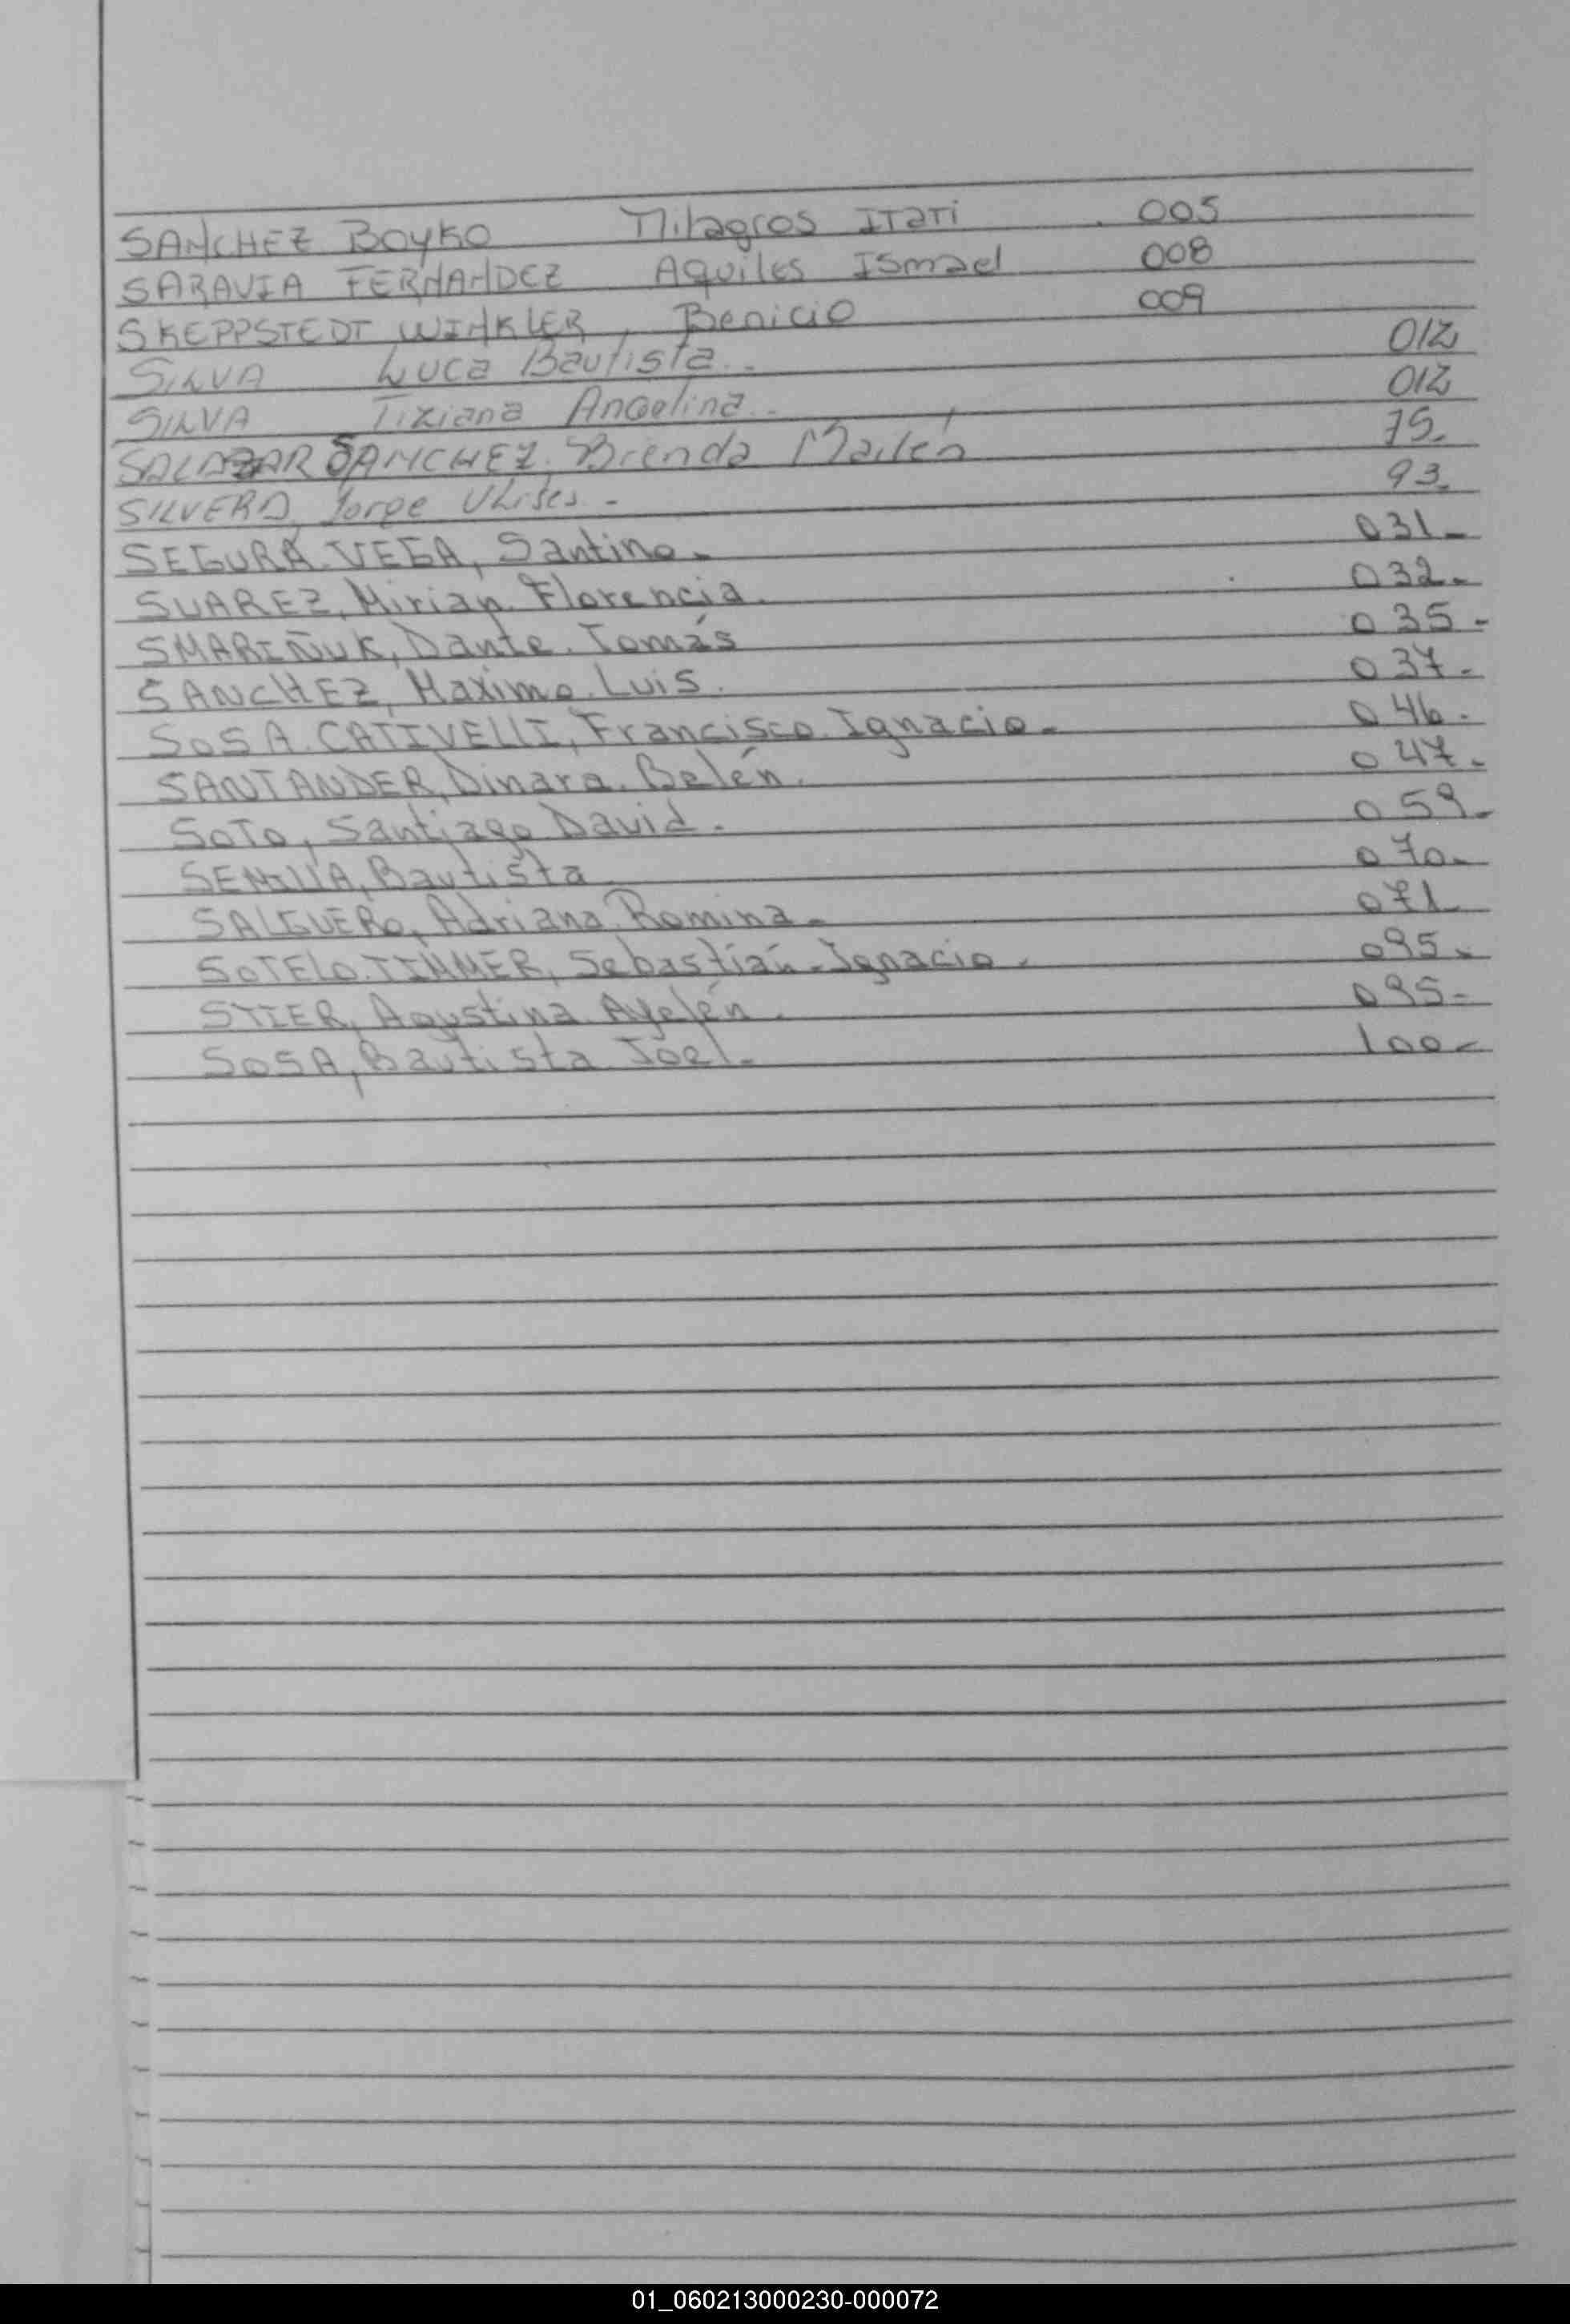 SANCHEZ BOYKO Milagros ITaTi 005
SARAVIA FERNANDEZ Aquiles ISmael 008
SKEPPSTEDT WINKLER, Benicio 009
SILVA Luca Bautista.- 012
SILVA Tiziana Angelina.- 012
SALAZAR SANCHEZ, Brenda Mailén 75.
SILVERA, Jorge Ulises.- 93.
SEGURA. VEGA, Santino.- 031-
SUAREZ, Mirian. Florencia. 032.-
SMARIÑUK, Dante. Tomás 035-
SANCHEZ, Maximo. Luis. 037-
SOSA. CATIVELLI, Francisco. Ignacio.- 046.
SANTANDER, Dinara. Belén. 047.-
SOTO, Santiago David.- 059.-
SENILLA, Bautista 070.-
SALGUERO, Adriana. Romina.- 071
SOTELO. TIMMER, Sebastián-Ignacio. 095-
STIER, Agustina Ayelén. 095-
SOSA, Bautista. Joel.- 100-
01_060213000230-000072